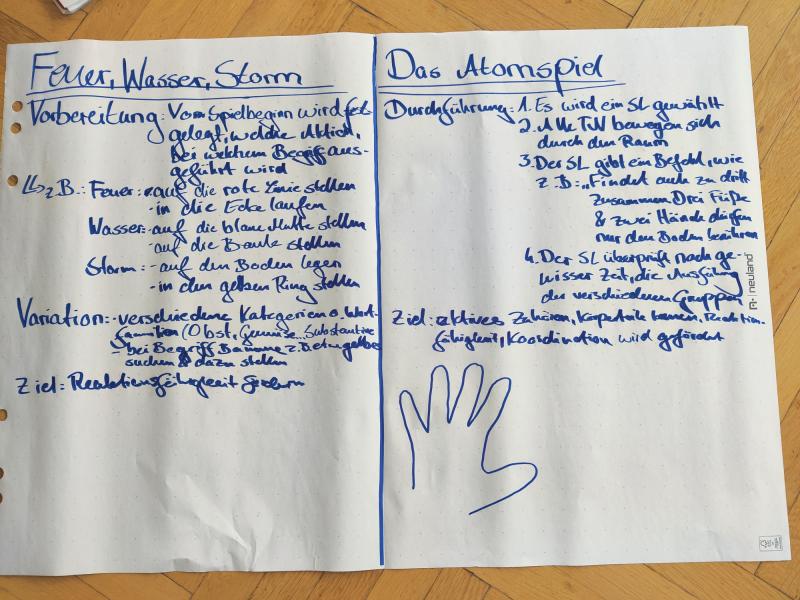 Feuer, Wasser, Sturm
Vorbereitung: Vor Spielbeginn wird fest-
gelegt, welche Aktion,
bei welchem Begriff aus-
geführt wird
z.B.: Feuer: -auf die rote Linie stellen
-in die Ecke laufen
Wasser: -auf die blaue Matte stellen
-auf die Bank stellen
Sturm: -auf den Boden legen
-in den gelben Ring stellen
Variation: -verschiedene Kategorien o. Wort-
familien (Obst, Gemüse... Substantive
- bei Begriff Banane z.B. etw. gelbes
suchen & dazu stellen
Ziel: Reaktionsfähigkeit fördern
Das Atomspiel
Durchführung: 1. Es wird ein SL gewählt
2. Alle TN bewegen sich
durch den Raum
3. Der SL gibt ein Befehl, wie
z.B.: „Findet euch zu dritt
zusammen. Drei Füße
& zwei Hände dürfen
nur den Boden berühren
4. Der SL überprüft nach ge-
wisser Zeit, die Ausführung
der verschiedenen Gruppen
Ziel: aktives Zuhören, Körperteile kennen, Reaktions-
fähigkeit, Koordination wird gefördert
neuland